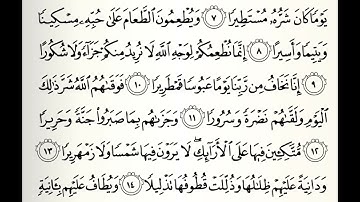 يَوْمًا كَانَ شَرُّهُۥ مُسْتَطِيرًا ٧ وَيُطْعِمُونَ ٱلطَّعَامَ عَلَىٰ حُبِّهِۦ مِسْكِينًا
وَيَتِيمًا وَأَسِيرًا ٨ إِنَّمَا نُطْعِمُكُمْ لِوَجْهِ ٱللَّهِ لَا نُرِيدُ مِنكُمْ جَزَآءً وَلَا شُكُورًا
٩ إِنَّا نَخَافُ مِن رَّبِّنَا يَوْمًا عَبُوسًا قَمْطَرِيرًا ١٠ فَوَقَىٰهُمُ ٱللَّهُ شَرَّ ذَٰلِكَ
ٱلْيَوْمِ وَلَقَّىٰهُمْ نَضْرَةً وَسُرُورًا ١١ وَجَزَىٰهُم بِمَا صَبَرُوا۟ جَنَّةً وَحَرِيرًا
١٢ مُّتَّكِـِٔينَ فِيهَا عَلَى ٱلْأَرَآئِكِ ۖ لَا يَرَوْنَ فِيهَا شَمْسًا وَلَا زَمْهَرِيرًا ١٣
وَدَانِيَةً عَلَيْهِمْ ظِلَـٰلُهَا وَذُلِّلَتْ قُطُوفُهَا تَذْلِيلًا ١٤ وَيُطَافُ عَلَيْهِم بِـَٔانِيَةٍ